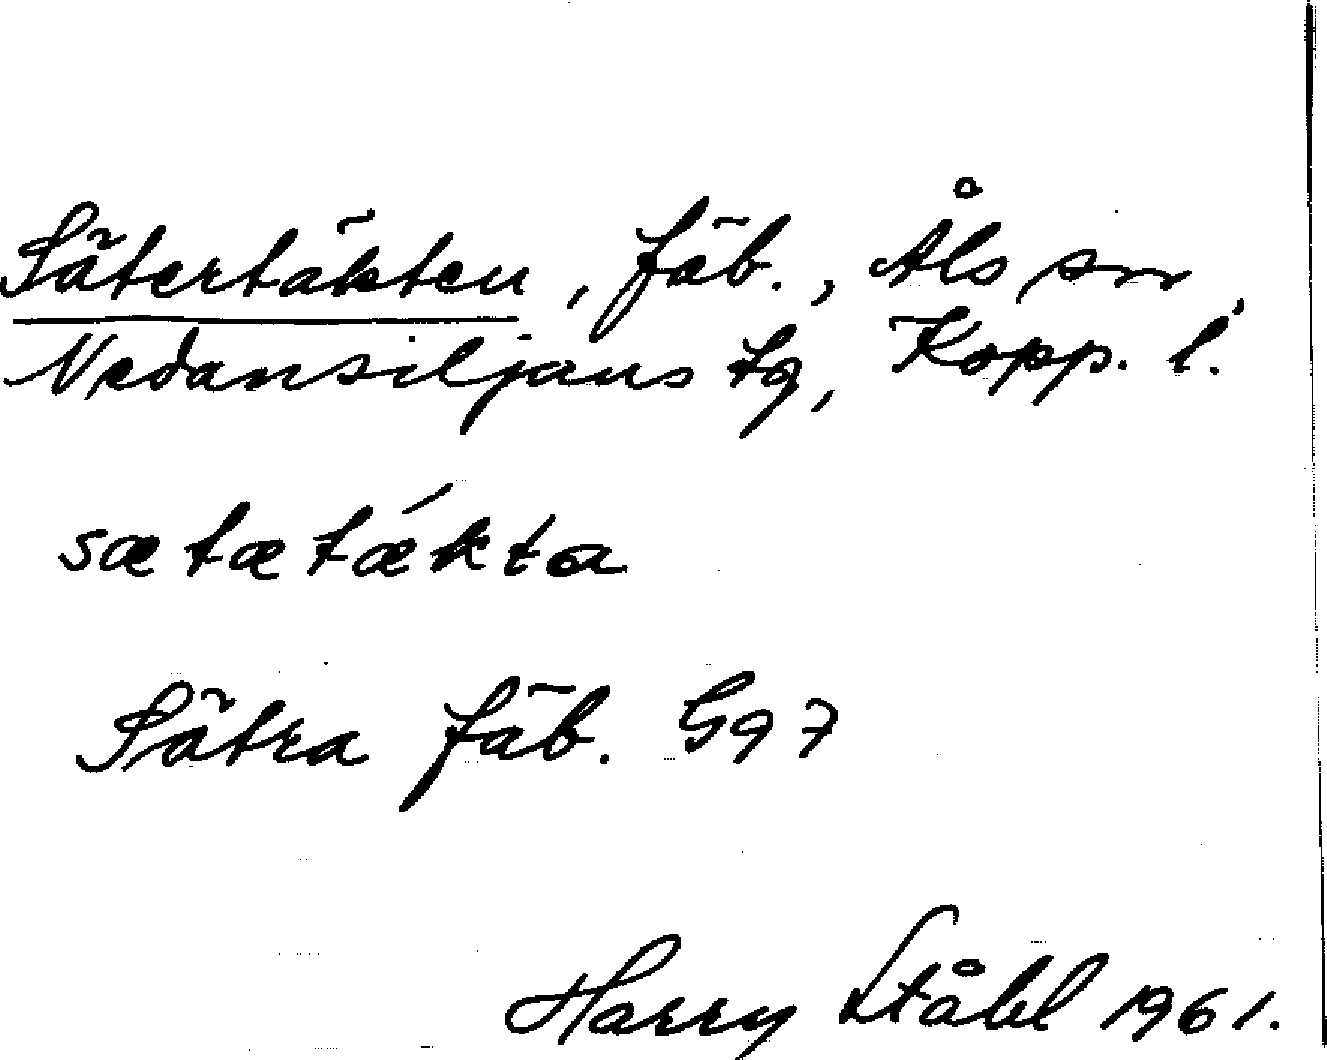 Sätertäkten, fäb., Åls sn,
Nedansiljans tg, Kopp. l.
sætætǽkta
Sätra fäb. G97
Harry Ståhl 1961.